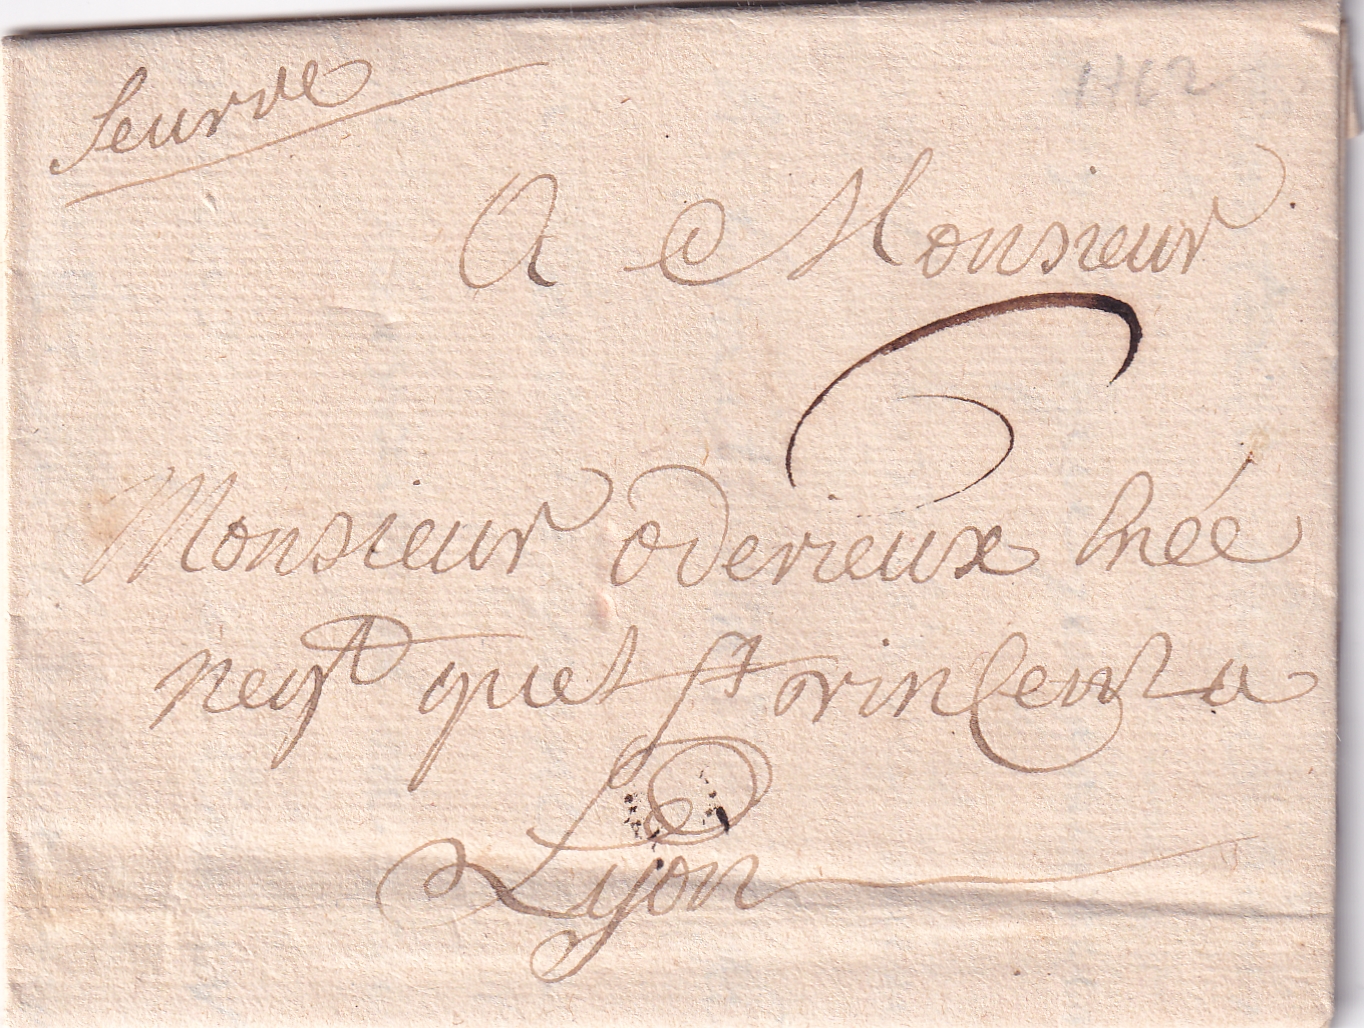 Seurre
1762
A Monsieur
Monsieur oderieux lnée
negt quet st vincent a
Lyon